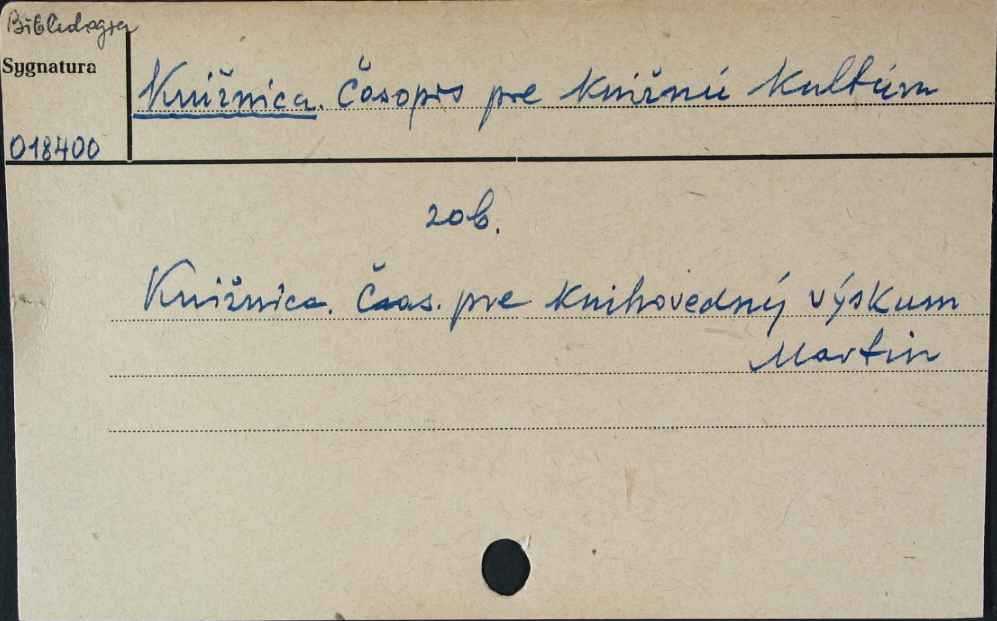 Sygnatura
Knižnica. Časopis pre knižnú kultúru
018400
zob.
Knižnica. Čas. pre knihovedný výskum
Martin